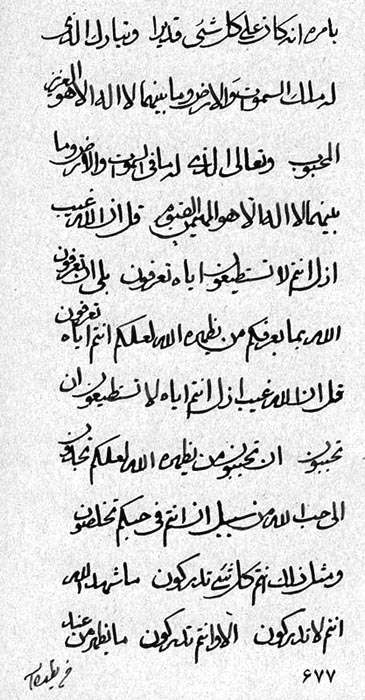 بامره انه كان على كل شئ قديرا وتبارك الذى
له ملك السموت والارض وما بينهما لا اله الا هو العزيز
المحبوب وتعالى الذى له ما فى السموات والارض وما
بينهما لا اله الا هو المهيمن القيوم قل ان الله غيب
ازل انتم لا تستطيعون اياه تعرفون بلى ان تعرفون
الله بما يعرفكم من يظهره الله لعلكم انتم اياه تعرفون
قل ان الله غيب ازل انتم اياه لا تستطيعون ان
تحببون ان تحببون من يظهره الله لعلكم
الى حب الله من سبيل ان انتم فى حبكم تخلصون
ومثل ذلك انتم كل شئ تدركون ما شهد الله
انتم لا تدركون الا وانتم تدركون ما يظهر من عند
٦٧٧